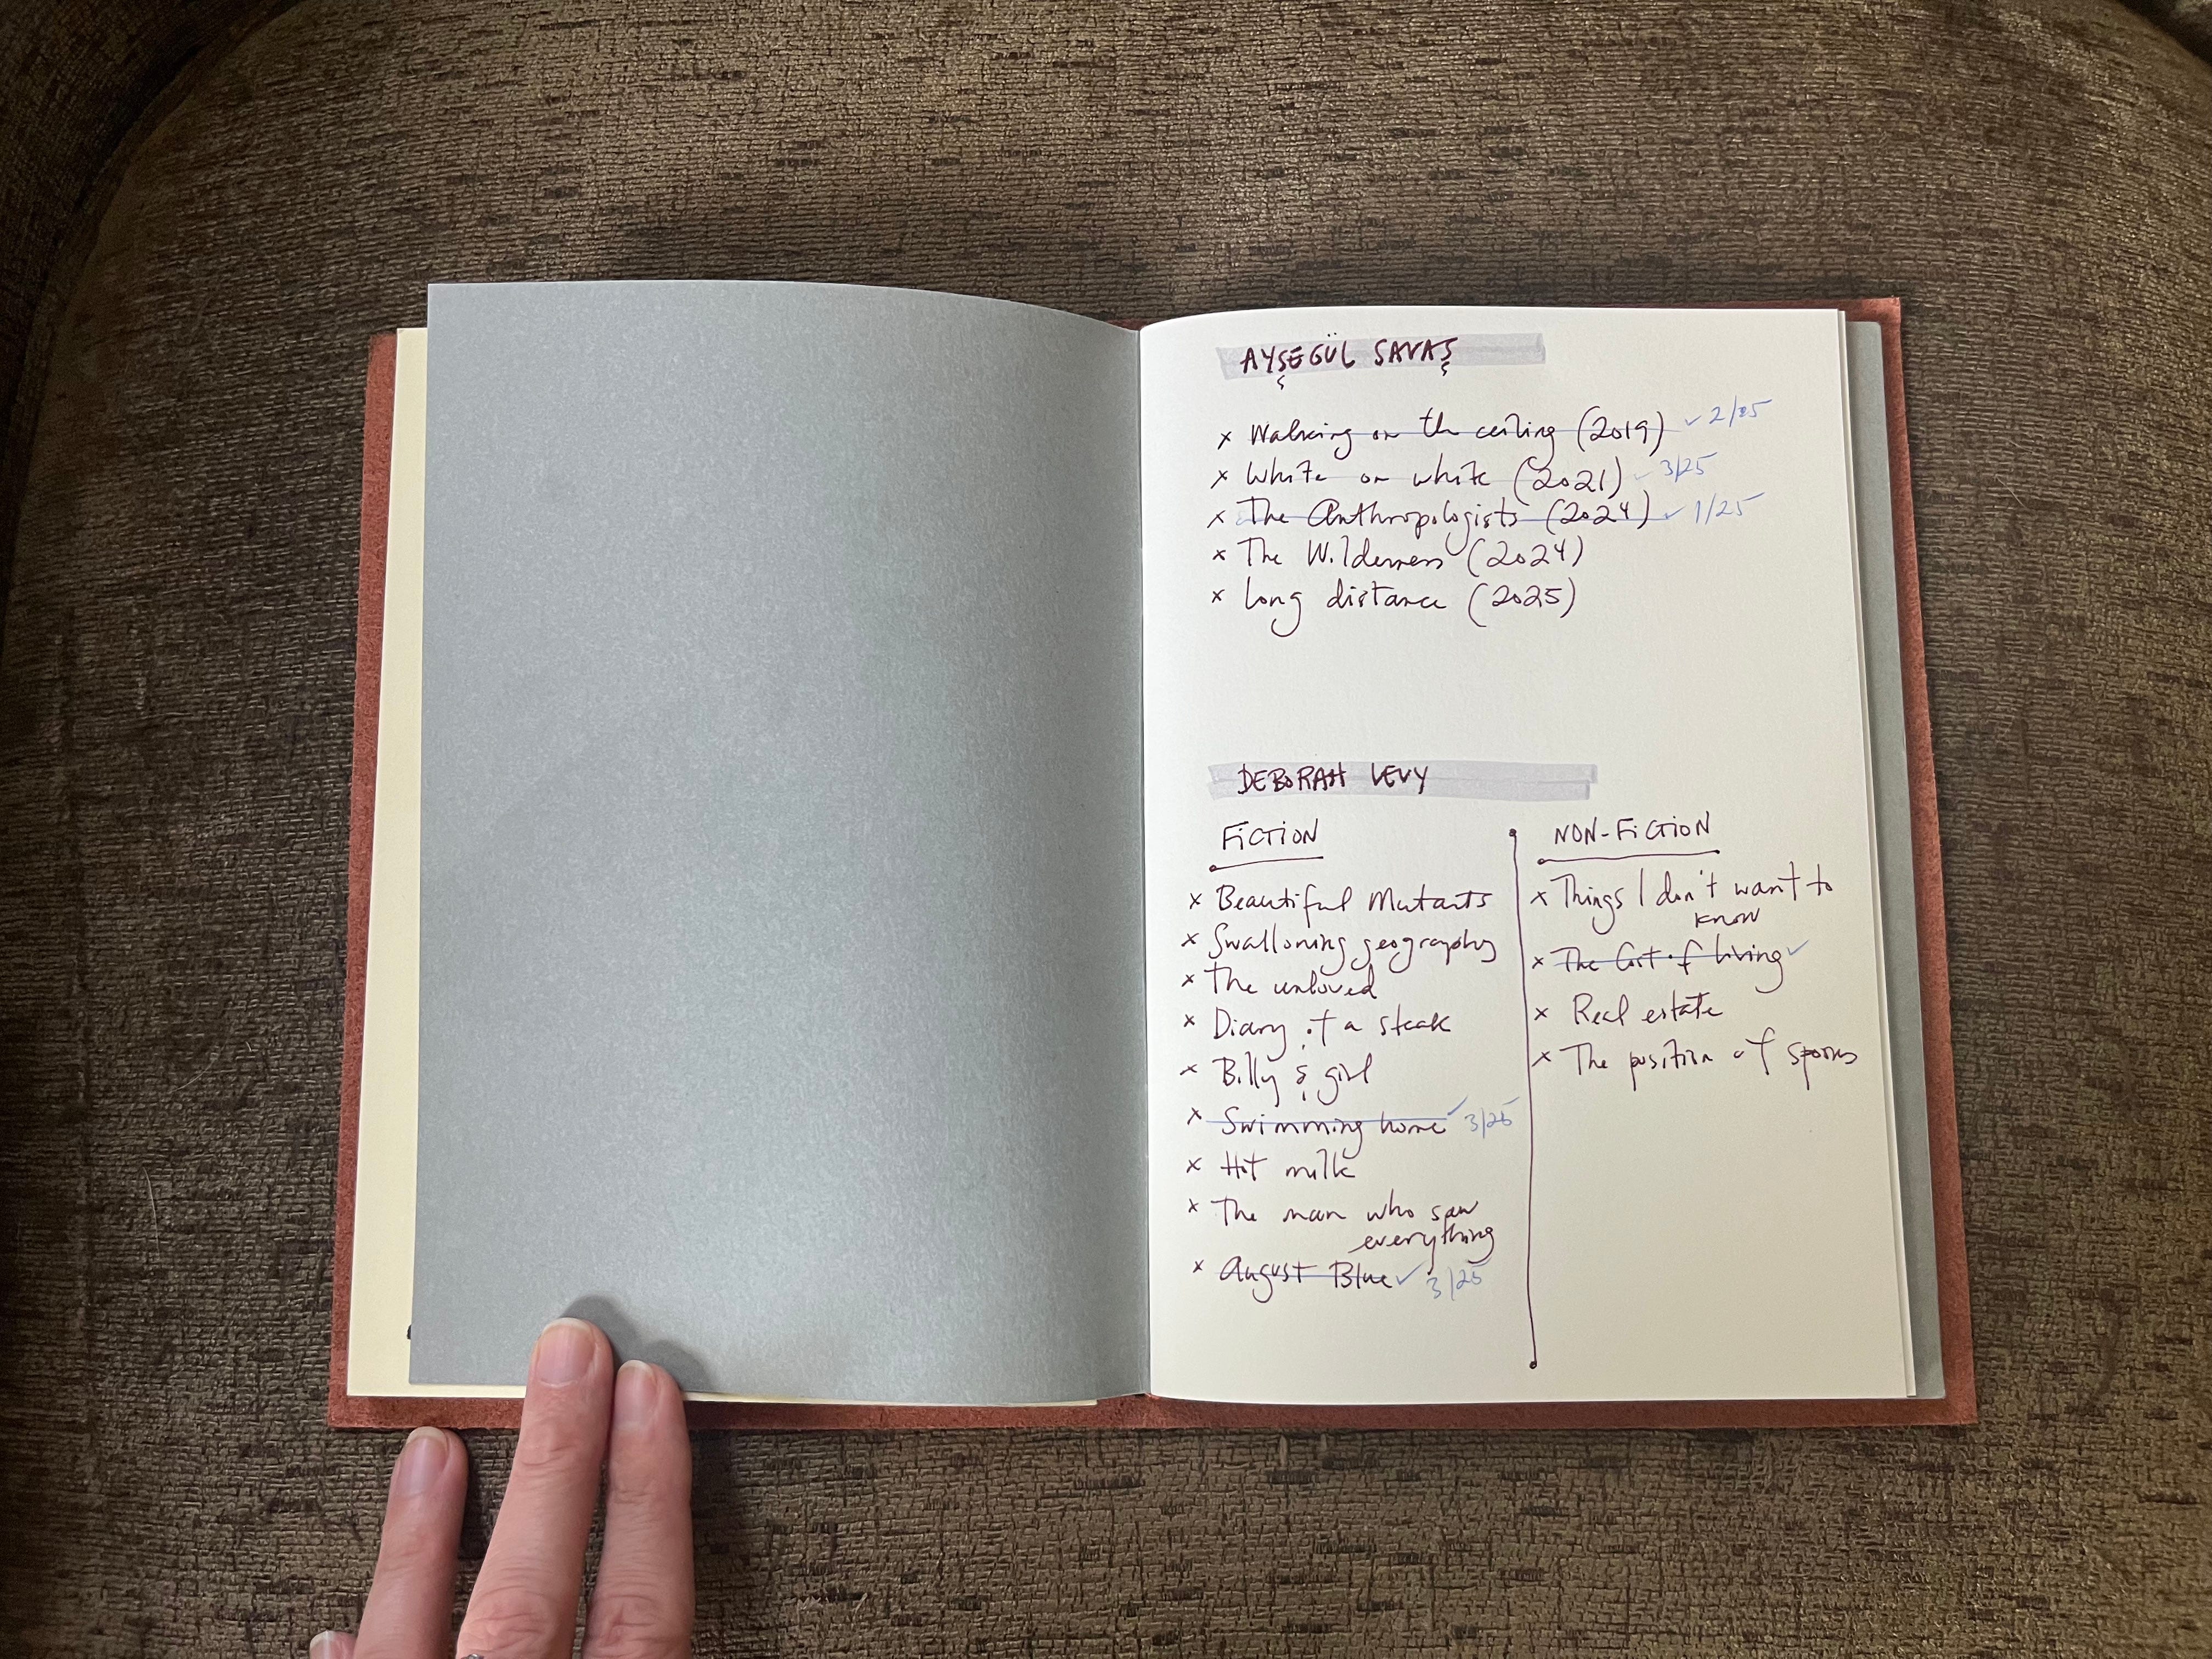 AYŞEGÜL SAVAŞ
x Walking on the ceiling (2019) ✓ 2/25
x White on white (2021) ✓ 3/25
x The Anthropologists (2024) ✓ 1/25
x The Wilderness (2024)
x Long distance (2025)
DEBORAH LEVY
FICTION
x Beautiful Mutants
x Swallowing geography
x The unloved
x Diary of a steak
x Billy & girl
x Swimming home ✓ 3/25
x Hot milk
x The man who saw
everything
x August Blue ✓ 3/25
NON-FICTION
x Things I don't want to
know
x The Cost of living ✓
x Real estate
x The position of spoons